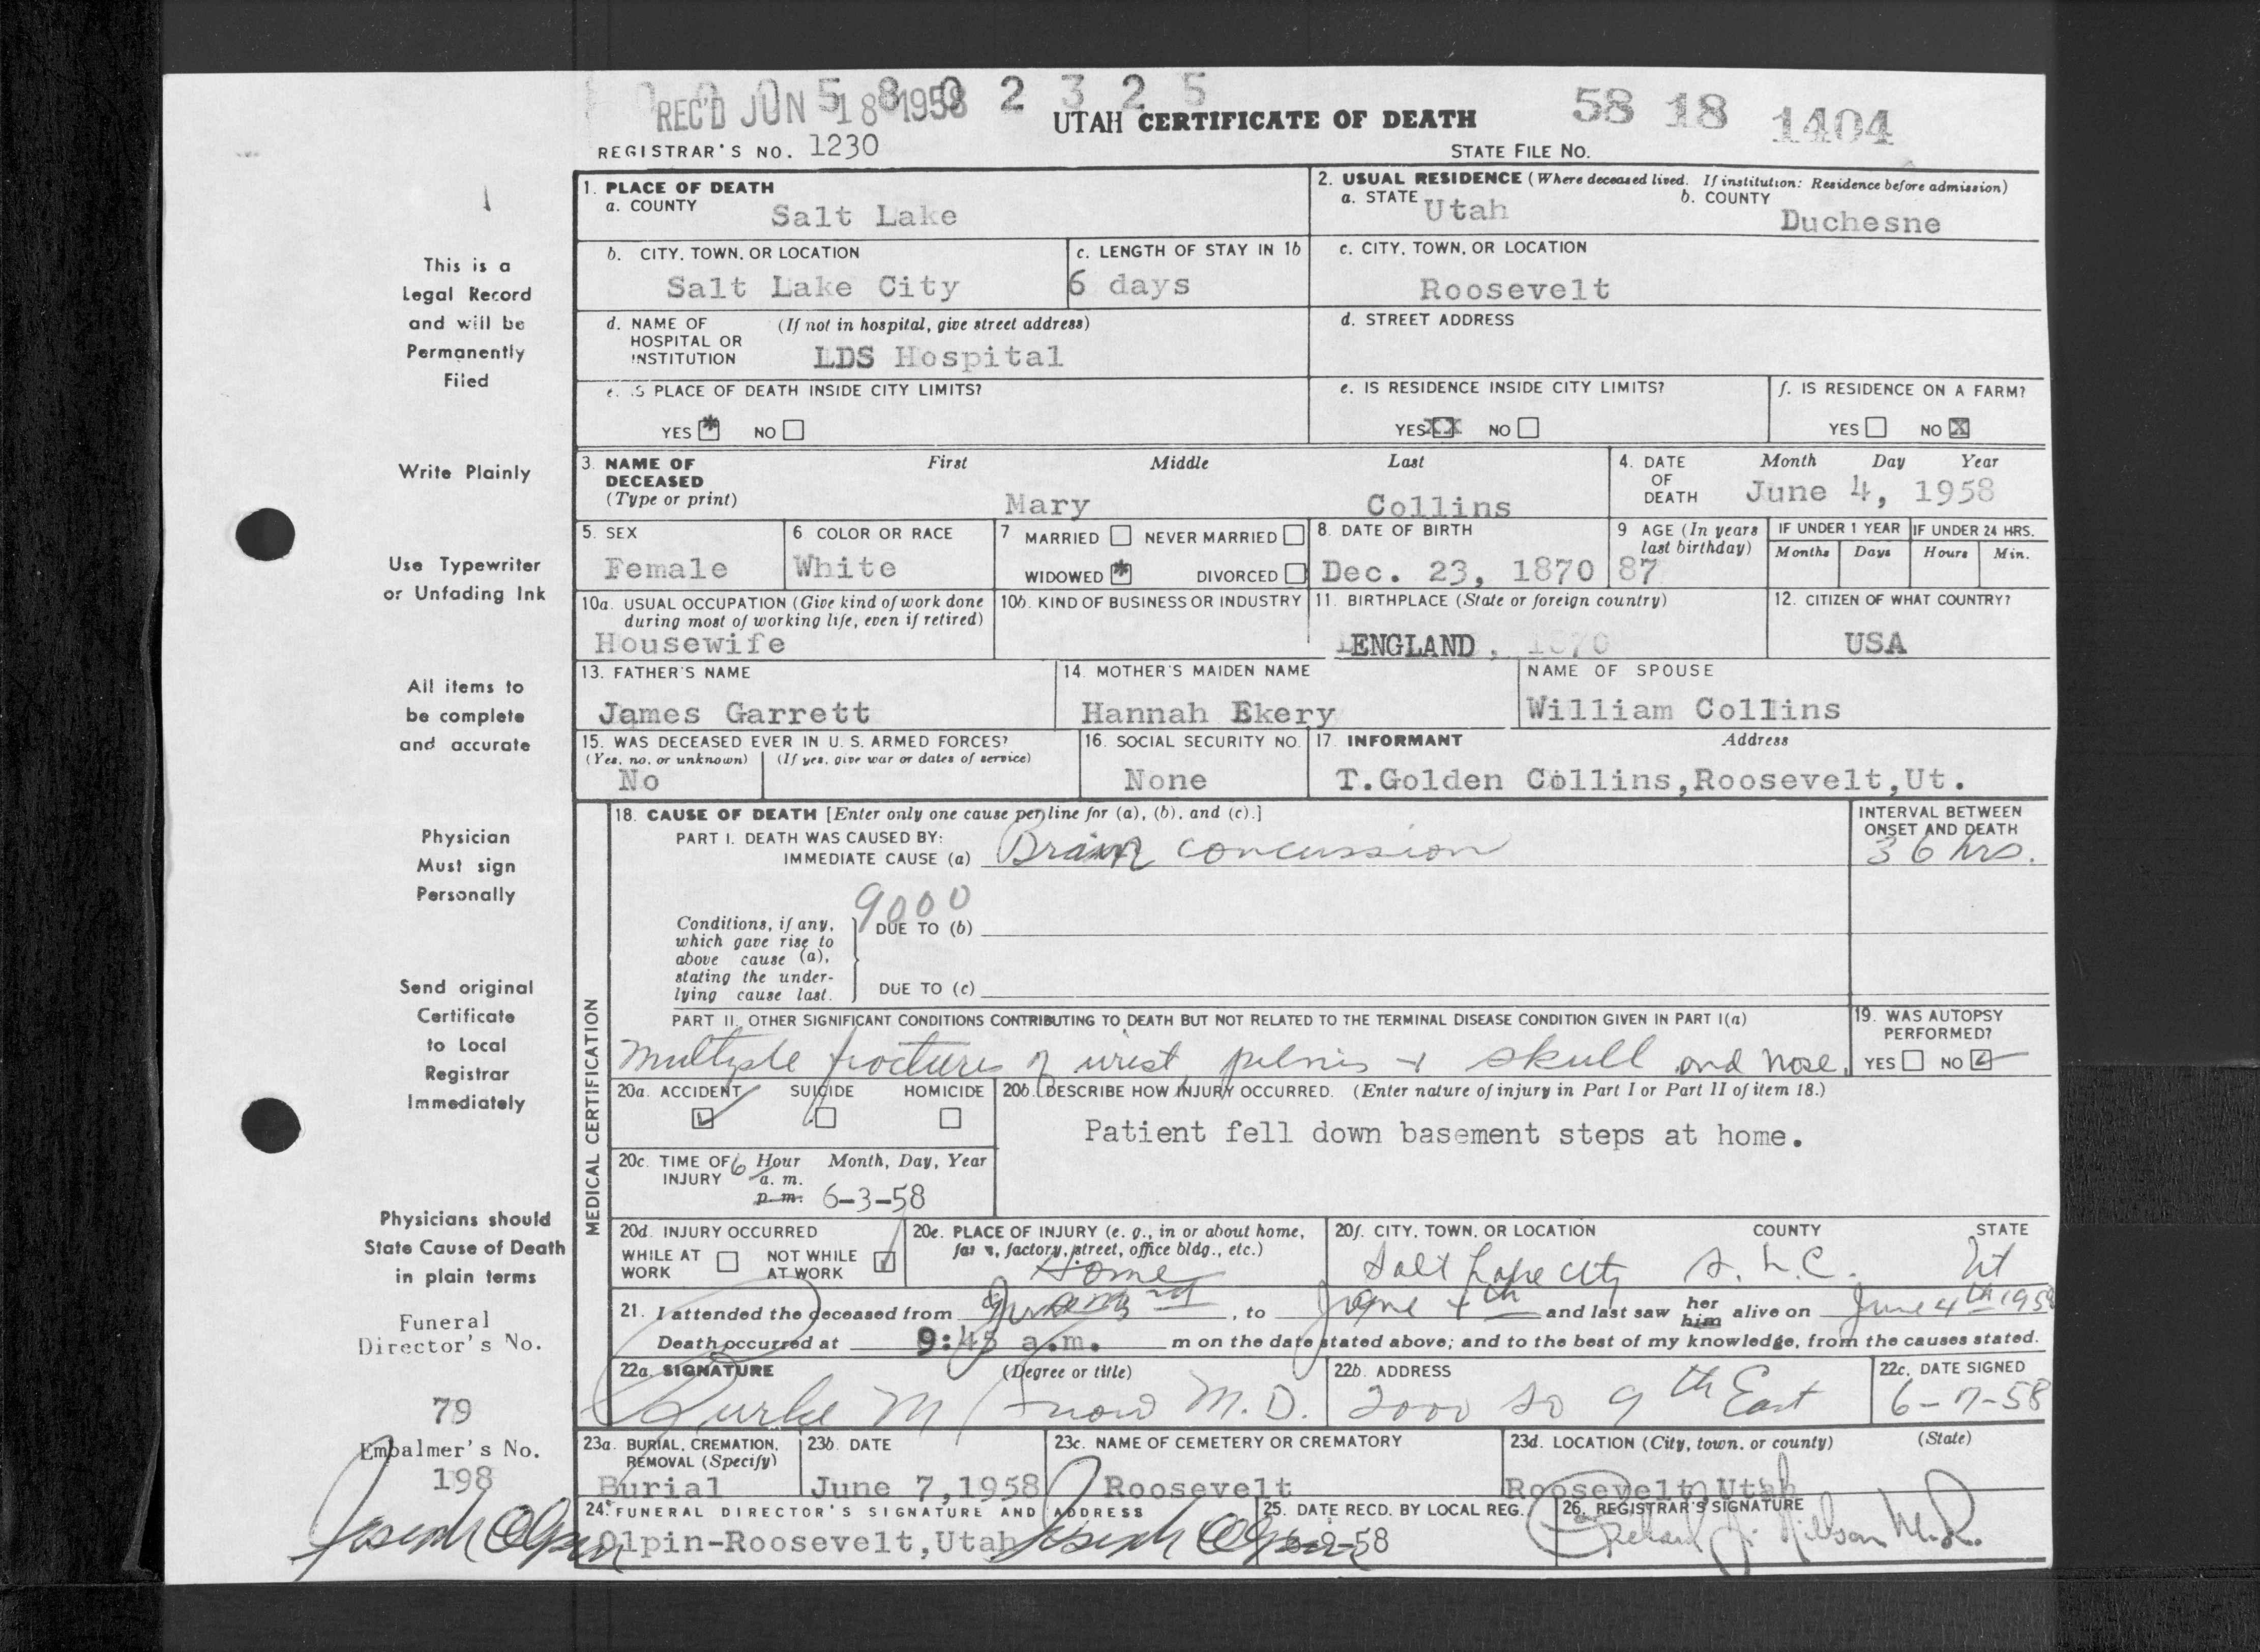 REC'D JUN 18 1958
5 8 0 2 3 2 5
UTAH CERTIFICATE OF DEATH
58 18 1404
REGISTRAR'S NO. 1230
STATE FILE NO.
This is a
Legal Record
and will be
Permanently
Filed
Write Plainly
Use Typewriter
or Unfading Ink
All items to
be complete
and accurate
Physician
Must sign
Personally
Send original
Certificate
to Local
Registrar
Immediately
Physicians should
State Cause of Death
in plain terms
Funeral
Director's No.
79
Embalmer's No.
198
Joseph Olpin
1. PLACE OF DEATH
a. COUNTY
Salt Lake
2. USUAL RESIDENCE (Where deceased lived. If institution: Residence before admission)
a. STATE Utah b. COUNTY Duchesne
b. CITY, TOWN, OR LOCATION
Salt Lake City
c. LENGTH OF STAY IN 1b
6 days
c. CITY, TOWN, OR LOCATION
Roosevelt
d. NAME OF HOSPITAL OR INSTITUTION (If not in hospital, give street address)
LDS Hospital
d. STREET ADDRESS
e. IS PLACE OF DEATH INSIDE CITY LIMITS?
YES * NO
e. IS RESIDENCE INSIDE CITY LIMITS?
YES XX NO
f. IS RESIDENCE ON A FARM?
YES NO X
3. NAME OF DECEASED (Type or print)
First Middle Last
Mary Collins
4. DATE OF DEATH Month Day Year
June 4, 1958
5. SEX
Female
6 COLOR OR RACE
White
7 MARRIED NEVER MARRIED
WIDOWED * DIVORCED
8. DATE OF BIRTH
Dec. 23, 1870
9 AGE (In years last birthday)
87
IF UNDER 1 YEAR IF UNDER 24 HRS.
Months Days Hours Min.
10a. USUAL OCCUPATION (Give kind of work done during most of working life, even if retired)
Housewife
10b. KIND OF BUSINESS OR INDUSTRY
11. BIRTHPLACE (State or foreign country)
ENGLAND, 1870
12. CITIZEN OF WHAT COUNTRY?
USA
13. FATHER'S NAME
James Garrett
14. MOTHER'S MAIDEN NAME
Hannah Ekery
NAME OF SPOUSE
William Collins
15. WAS DECEASED EVER IN U. S. ARMED FORCES?
(Yes, no, or unknown) (If yes, give war or dates of service)
No
16. SOCIAL SECURITY NO.
None
17. INFORMANT Address
T.Golden Collins,Roosevelt,Ut.
MEDICAL CERTIFICATION
18. CAUSE OF DEATH [Enter only one cause per line for (a), (b), and (c).]
PART I. DEATH WAS CAUSED BY:
IMMEDIATE CAUSE (a) Brain concussion
INTERVAL BETWEEN ONSET AND DEATH
36 hrs.
9000
Conditions, if any, which gave rise to above cause (a), stating the underlying cause last.
DUE TO (b)
DUE TO (c)
PART II. OTHER SIGNIFICANT CONDITIONS CONTRIBUTING TO DEATH BUT NOT RELATED TO THE TERMINAL DISEASE CONDITION GIVEN IN PART I(a)
multiple fractures of wrist, pelvis + skull and nose.
19. WAS AUTOPSY PERFORMED?
YES NO
20a. ACCIDENT SUICIDE HOMICIDE
20b. DESCRIBE HOW INJURY OCCURRED. (Enter nature of injury in Part I or Part II of item 18.)
Patient fell down basement steps at home.
20c. TIME OF INJURY Hour Month, Day, Year
6 a. m.
p. m. 6-3-58
20d. INJURY OCCURRED
WHILE AT WORK NOT WHILE AT WORK
20e. PLACE OF INJURY (e. g., in or about home, farm, factory, street, office bldg., etc.)
Home
20f. CITY, TOWN, OR LOCATION COUNTY STATE
Salt Lake City S. L. C. Ut
21. I attended the deceased from June, to June 4th and last saw her him alive on June 4th 1958
Death occurred at 9:45 a.m. m on the date stated above; and to the best of my knowledge, from the causes stated.
22a. SIGNATURE (Degree or title)
Burke M Snow M.D.
22b. ADDRESS
2000 So 9th East
22c. DATE SIGNED
6-7-58
23a. BURIAL, CREMATION, REMOVAL (Specify)
Burial
23b. DATE
June 7,1958
23c. NAME OF CEMETERY OR CREMATORY
Roosevelt
23d. LOCATION (City, town, or county) (State)
Roosevelt, Utah
24. FUNERAL DIRECTOR'S SIGNATURE AND ADDRESS
Olpin-Roosevelt,Utah Joseph Olpin
25. DATE RECD. BY LOCAL REG.
-58
26. REGISTRAR'S SIGNATURE